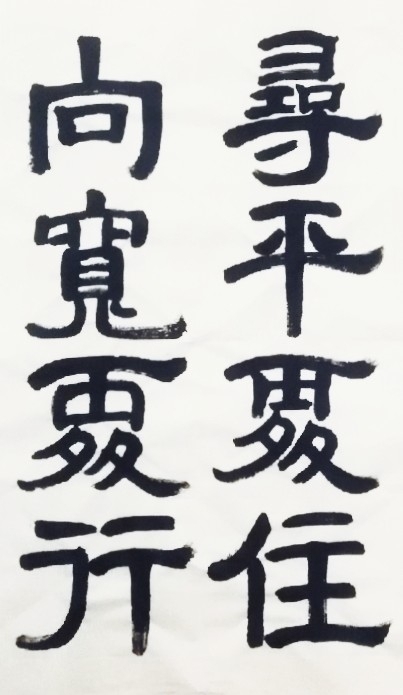 尋平處住
向寬處行